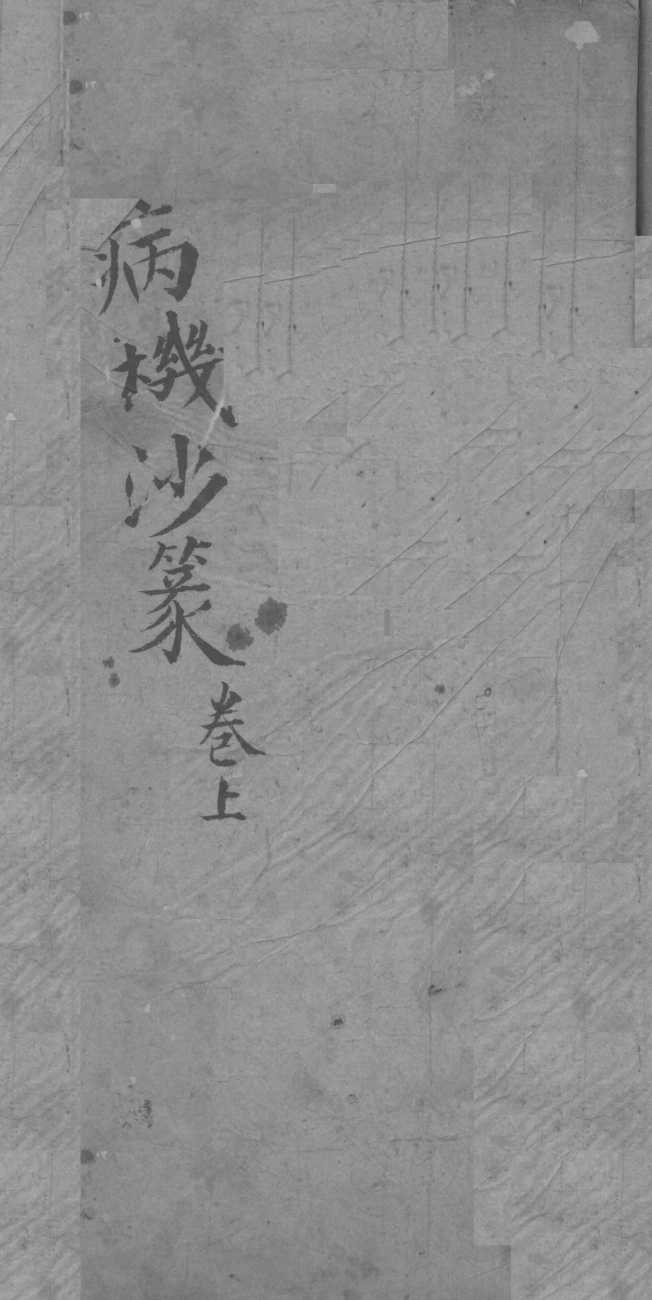 病機沙篆
巻上